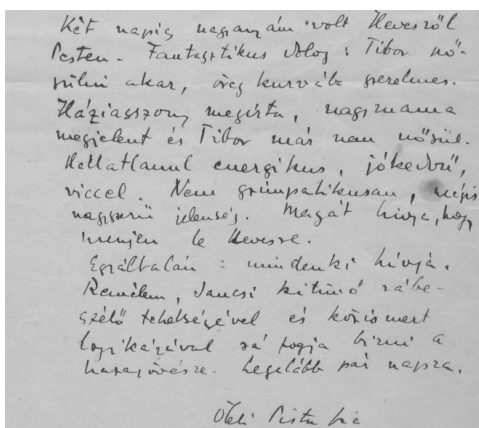 Két napig nagyanyám volt Hevesről
Pesten. Fantasztikus dolog: Tibor nő-
sülni akar, öreg kurvába szerelmes.
Háziasszony megírta, nagymama
megjelent és Tibor már nem nősül.
Hallatlanul energikus, jókedvű,
viccel. Nem szimpatikusan, mégis
nagyszerű jelenség. Magát hívja, hogy
menjen le Hevesre.
Egyáltalán: mindenki hívja.
Remélem, Jancsi kitűnő rábe-
szélő tehetségével és közismert
logikájával rá fogja bírni a
hazajövésre. Legalább pár napra.
Öleli Pista